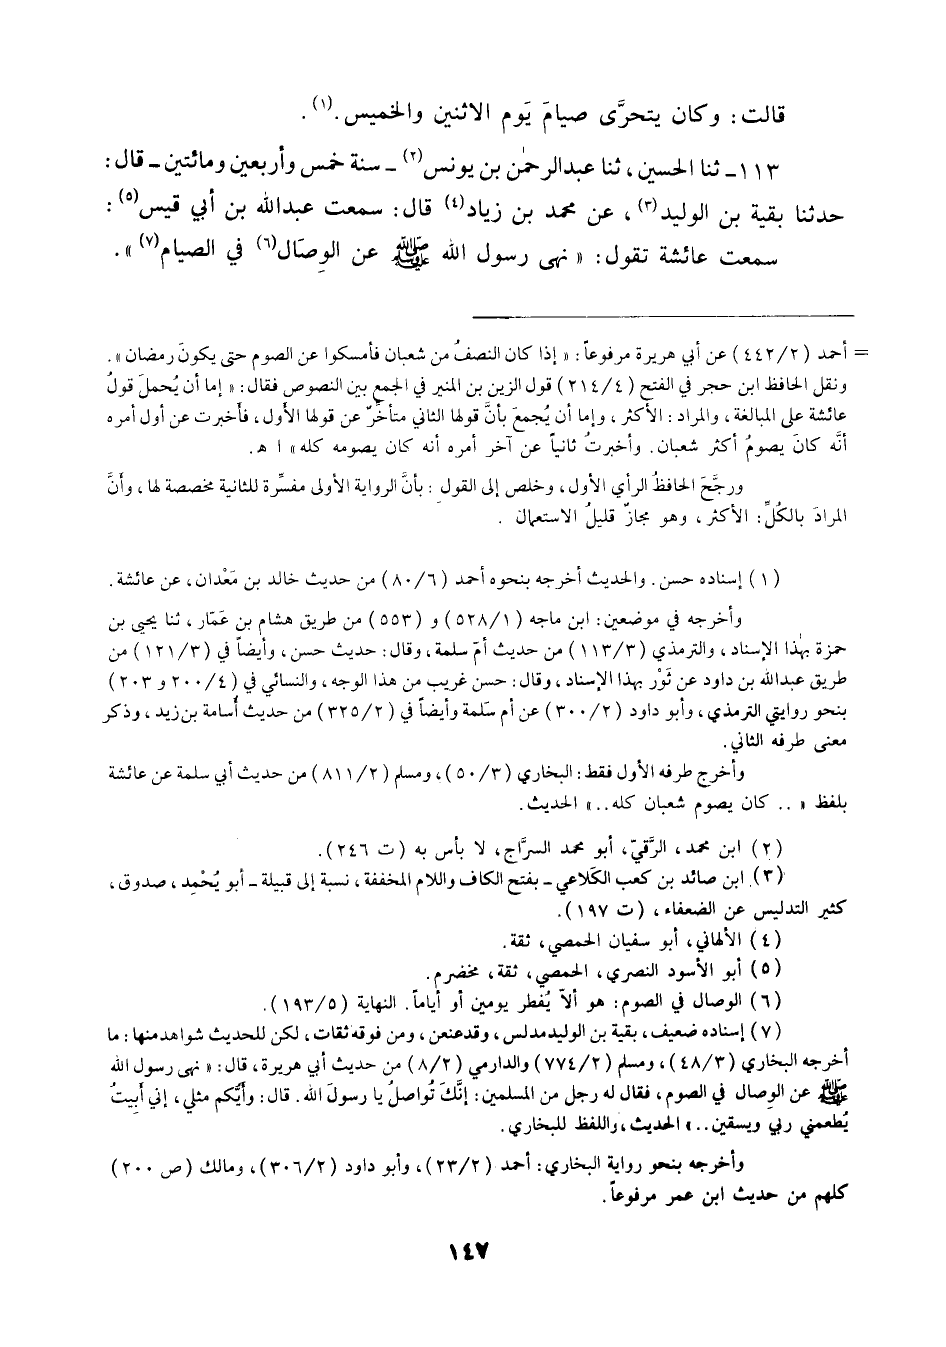 قالت: وكان يتحرَّى صيامَ يَوم الاثنين والخميس.(١).
١١٣ـ ثنا الحسين، ثنا عبدالرحمٰن بن يونس(٢) ـ سنة خمس وأربعين ومائتين ـ قال:
حدثنا بقية بن الوليد(٣)، عن محمد بن زياد(٤) قال: سمعت عبدالله بن أبي قيس(٥):
سمعت عائشة تقول: «نهى رسول الله ﷺ عن الوِصَال(٦) في الصيام(٧)».
= أحمد (٤٤٢/٢) عن أبي هريرة مرفوعاً: «إذا كان النصفُ من شعبان فأمسكوا عن الصوم حتى يكونَ رمضان».
ونقل الحافظ ابن حجر في الفتح (٢١٤/٤) قول الزين بن المنير في الجمع بين النصوص فقال: «إما أن يُحملَ قولُ
عائشة على المبالغة، والمراد: الأكثر، وإما أن يُجمعَ بأنَّ قولها الثاني متأخِّرٌ عن قولها الأول، فأخبرت عن أول أمره
أنَّه كانَ يصومُ أكثر شعبان. وأخبرتُ ثانياً عن آخر أمره أنه كان يصومه كله» ا هـ.
ورجَّحَ الحافظُ الرأي الأول، وخلص إلى القول: بأنَّ الرواية الأولى مفسِّرة للثانية مخصصة لها، وأنَّ
المرادَ بالكُلِّ: الأكثر، وهو مجازٌ قليلُ الاستعمال.
(١) إسناده حسن. والحديث أخرجه بنحوه أحمد (٨٠/٦) من حديث خالد بن مَعْدان، عن عائشة.
وأخرجه في موضعين: ابن ماجه (٥٢٨/١) و (٥٥٣) من طريق هشام بن عمّار، ثنا يحيى بن
حمزة بهٰذا الإسناد، والترمذي (١١٣/٣) من حديث أمّ سلمة، وقال: حديث حسن، وأيضاً في (١٢١/٣) من
طريق عبدالله بن داود عن ثَوْر بهذا الإسناد، وقال: حسن غريب من هذا الوجه، والنسائي في (٢٠٠/٤ و ٢٠٣)
بنحو روايتي الترمذي، وأبو داود (٣٠٠/٢) عن أم سَلمة وأيضاً في (٣٢٥/٢) من حديث أُسامة بن زيد، وذكر
معنى طرفه الثاني.
وأخرج طرفه الأول فقط: البخاري (٥٠/٣)، ومسلم (٨١١/٢) من حديث أبي سلمة عن عائشة
بلفظ «.. كان يصوم شعبان كله..» الحديث.
(٢) ابن محمد، الرَّقيّ، أبو محمد السرَّاج، لا بأس به (ت ٢٤٦).
(٣) ابن صائد بن كعب الكَلاعي ـ بفتح الكاف واللام المخففة، نسبة إلى قبيلة ـ أبو يُحْمِد، صدوق،
كثير التدليس عن الضعفاء، (ت ١٩٧).
(٤) الألهاني، أبو سفيان الحمصي، ثقة.
(٥) أبو الأسود النصري، الحمصي، ثقة، مخضرم.
(٦) الوصال في الصوم: هو ألاّ يُفطر يومين أو أياماً. النهاية (١٩٣/٥).
(٧) إسناده ضعيف، بقية بن الوليد مدلس، وقد عنعن، ومن فوقه ثقات، لكن للحديث شواهد منها: ما
أخرجه البخاري (٤٨/٣)، ومسلم (٧٧٤/٢) والدارمي (٨/٢) من حديث أبي هريرة، قال: «نهى رسول الله
ﷺ عن الوِصال في الصوم، فقال له رجل من المسلمين: إنَّكَ تُواصلُ يا رسولَ الله. قال: وأيّكم مثلي، إني أَبِيتُ
يُطعمني ربي ويسقين..» الحديث، واللفظ للبخاري.
وأخرجه بنحو رواية البخاري: أحمد (٢٣/٢)، وأبو داود (٣٠٦/٢)، ومالك (ص ٢٠٠)
كلهم من حديث ابن عمر مرفوعاً.
١٤٧